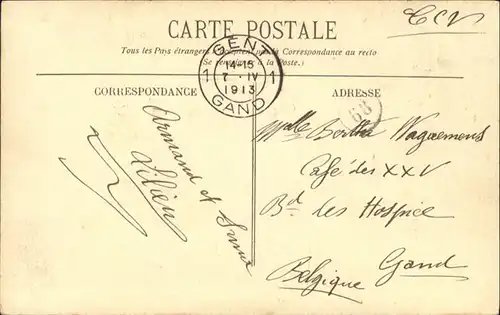 CARTE POSTALE
Tous les Pays étrangers acceptent pas la Correspondance au recto
(Se renseigner à la Poste.)
GENT 1
14-15
1 7 · IV 1
1913
GAND
CORRESPONDANCE
ADRESSE
68
Armand et
Lilien
Mlle Bertha Wagemens
Café des XXV
Bd des Hospice
Gand
Belgique